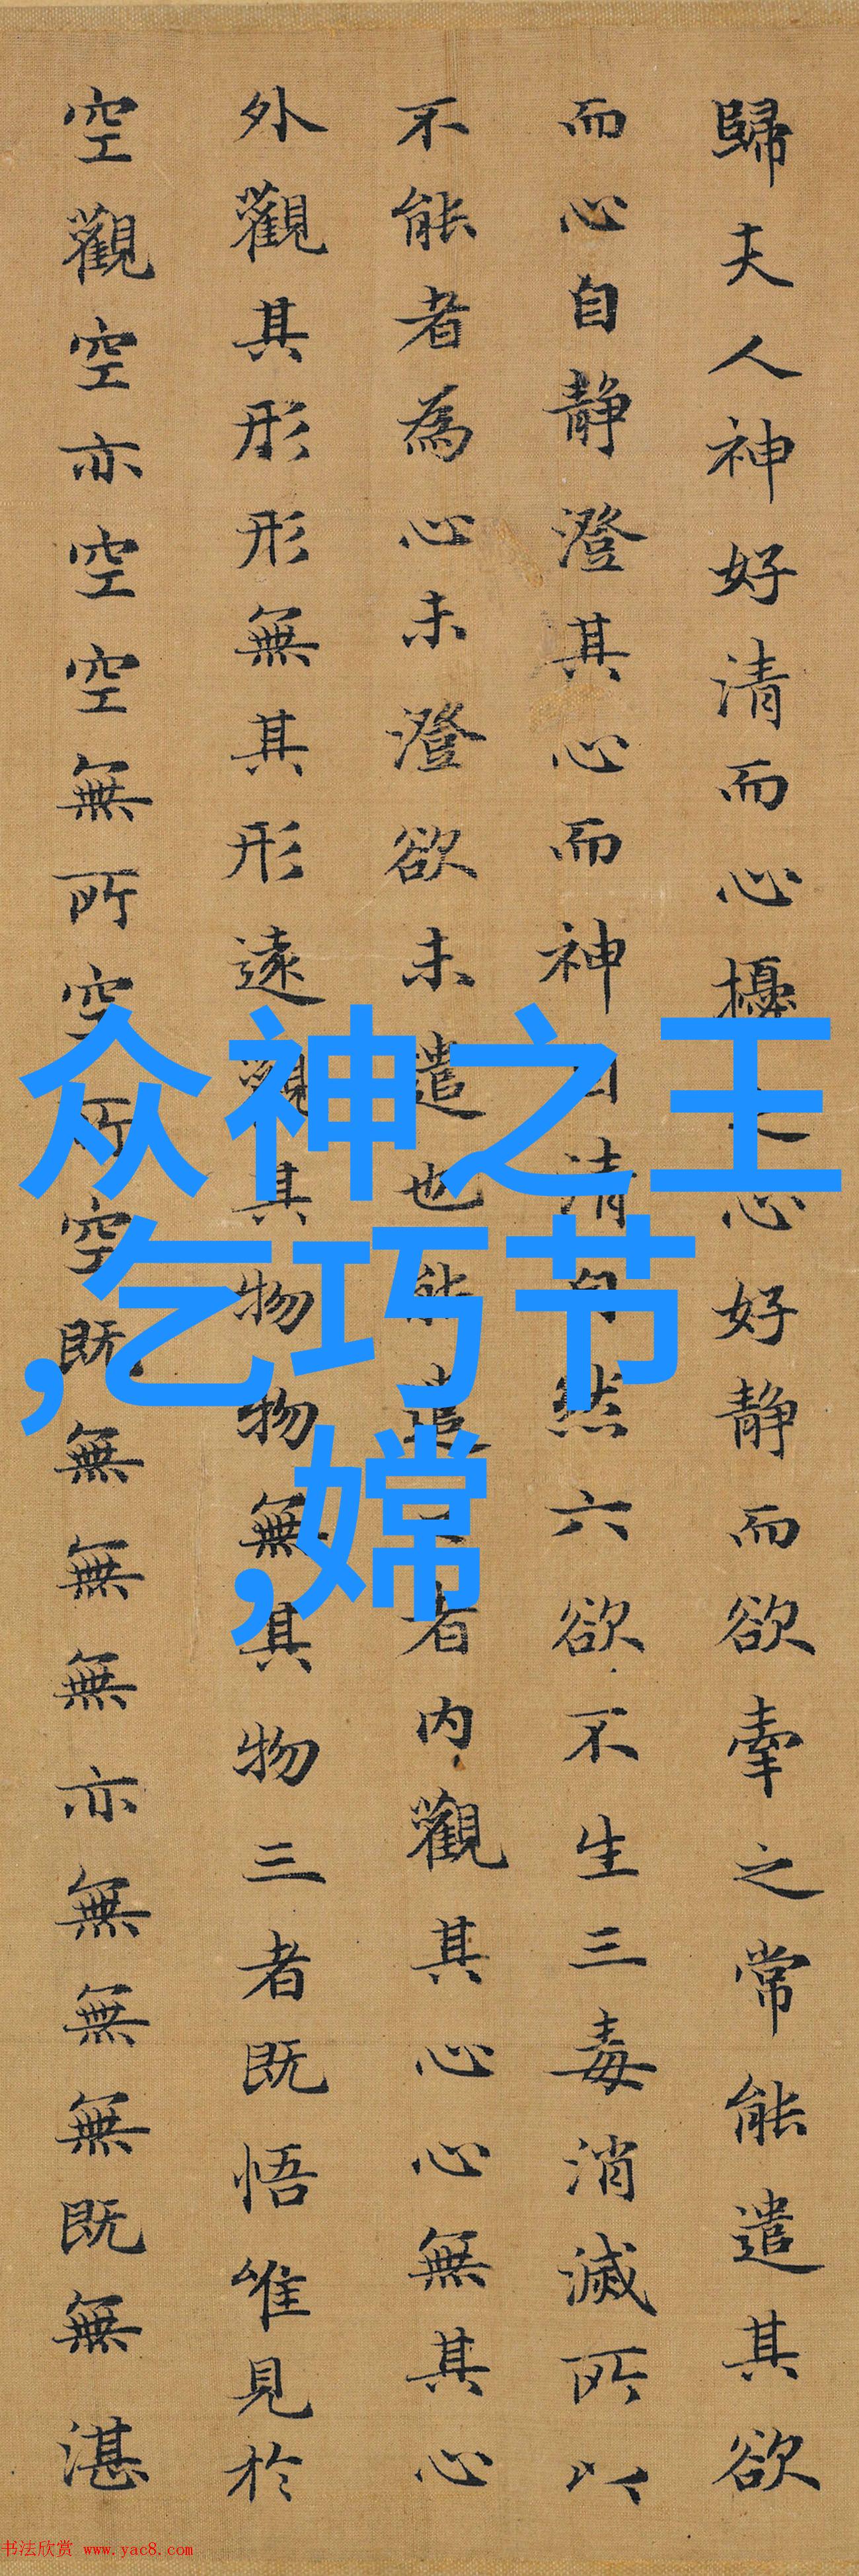 歸夫人神好清而心擾心好静而欲牽之常能遣其欲
而心自静澄其心而神自清自然六欲不生三毒消滅所以
不能者為心未澄欲未遣也能遣之者内觀其心心無其心
外觀其形形無其形遠觀其物物無其物三者既悟唯見於
空觀空亦空空無所空所空既無無無亦無無無既無湛
众神之王
,乞巧节
,嫦
书法欣赏 www.yac8.com